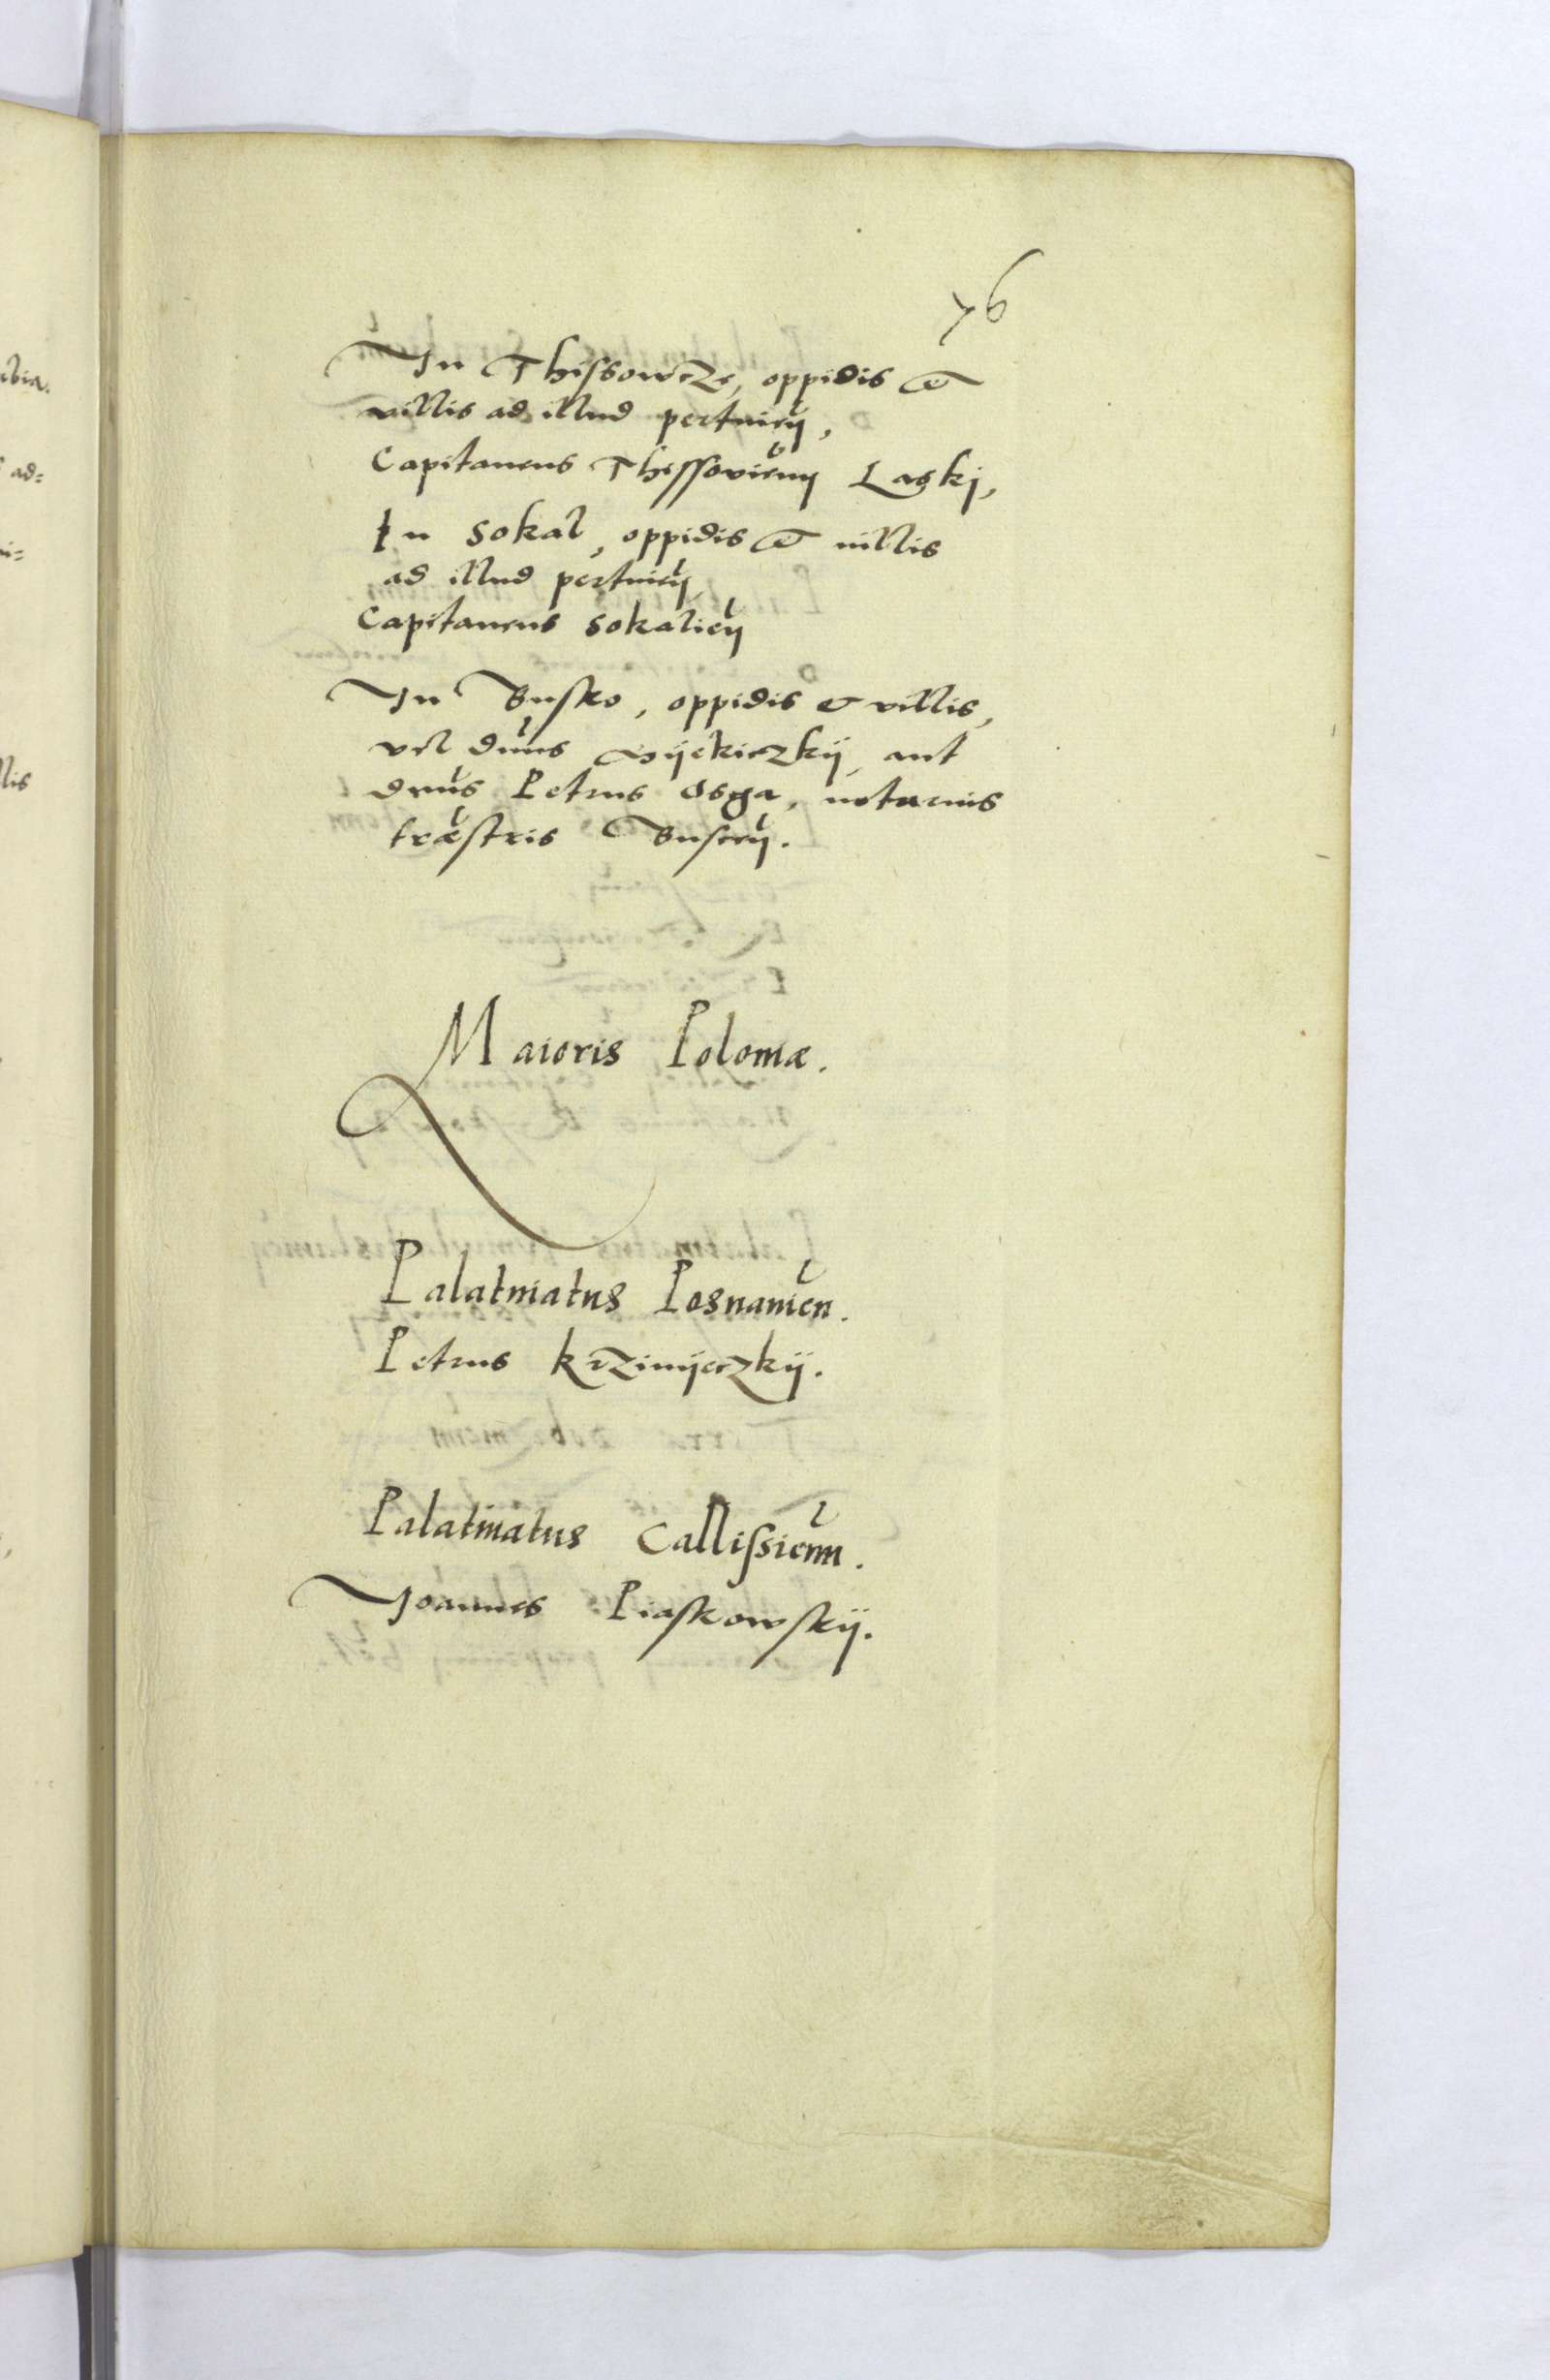 76
In Thissowcze, oppidis &
villis ad illud pertnien̄,
Capitaneus Thessovien̄ Laskj,
In Sokal, oppidis & villis
ad illud pertnien̄,
Capitaneus Sokalien̄
In Busko, oppidis & villis,
vel dn̄us aut
dn̄us Petrus Osga, notarius
træstris Buscen̄.
Maioris Poloniæ.
Palatinatus Posnanien̄.
Petrus Krzinijeczkij.
Palatinatus Callissien̄.
Joannes Piaskowskij.